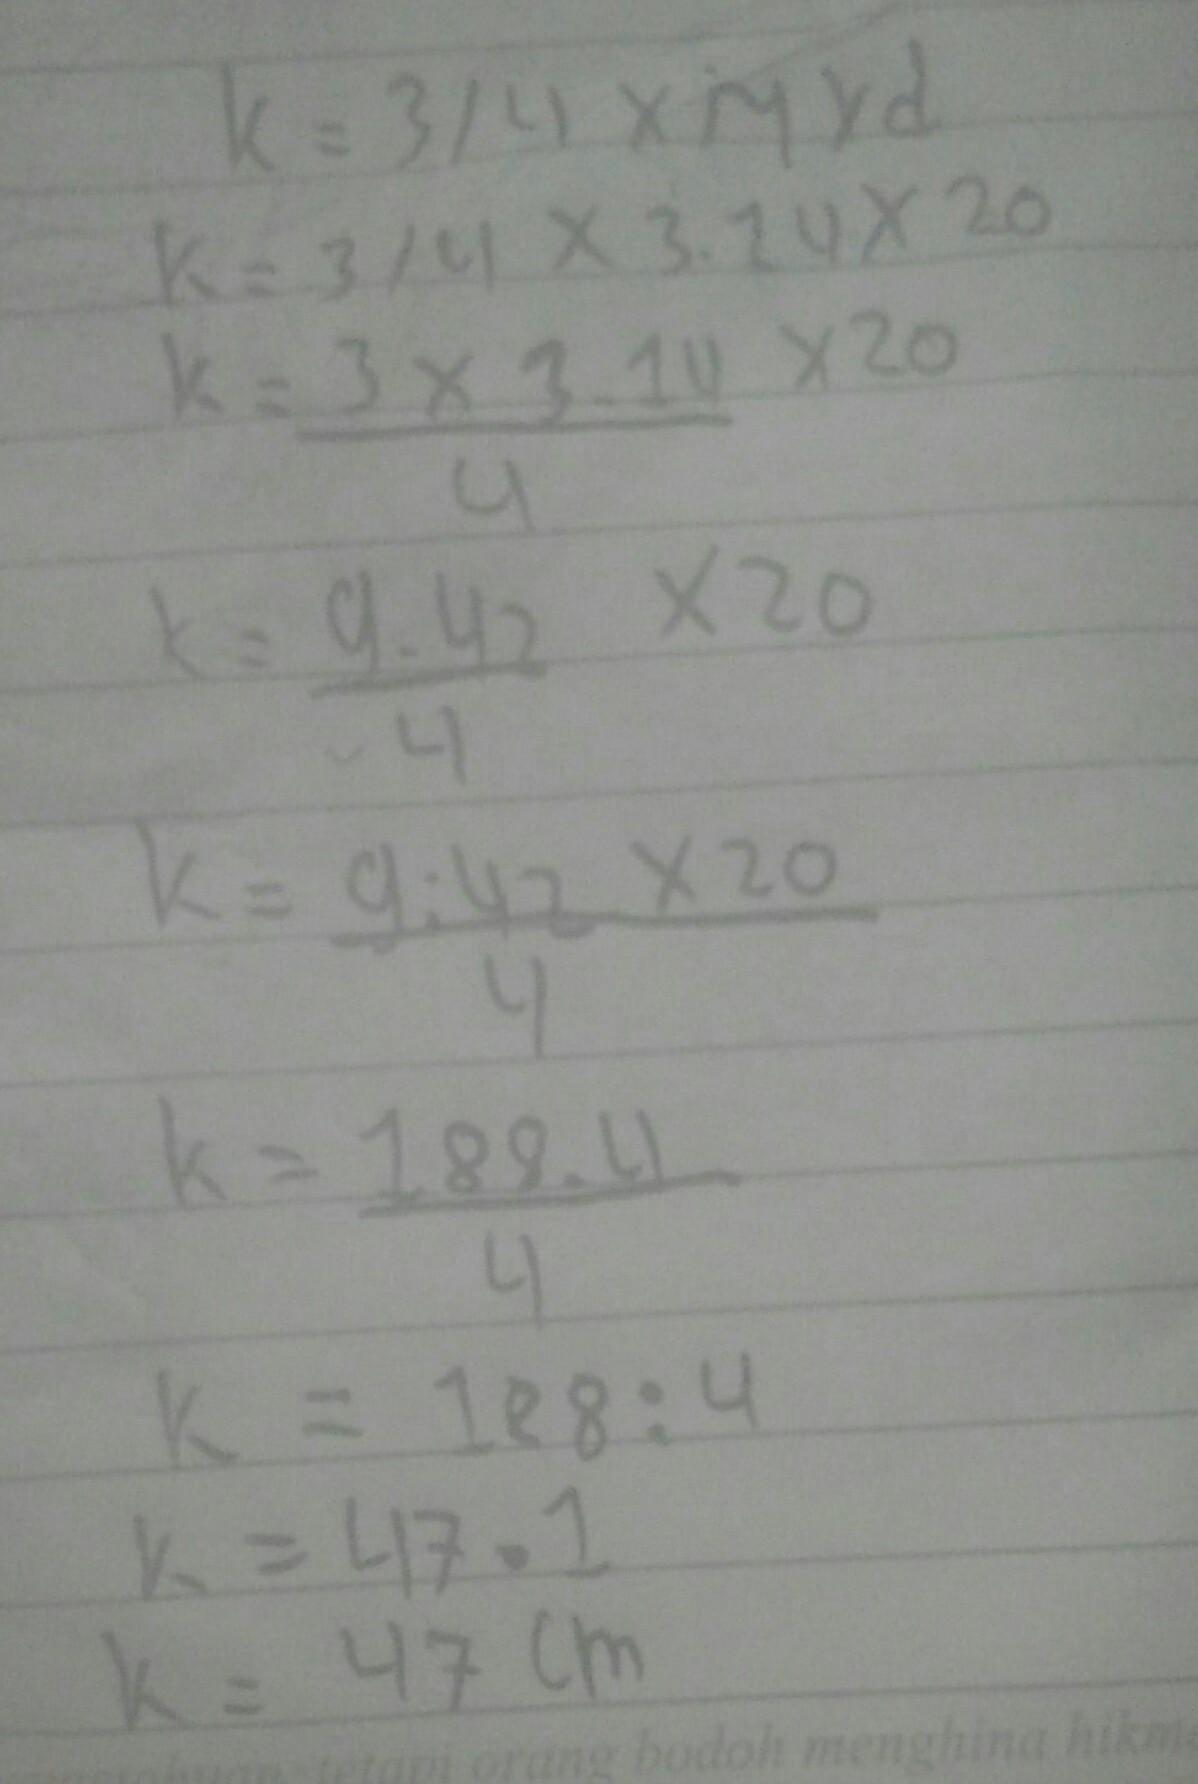 k = 3/4 x π x d
k = 3/4 x 3.14 x 20
k = 3 x 3.14 x 20
4
k = 9.42 x 20
4
k = 9.42 x 20
4
k = 188.4
4
k = 188 : 4
k = 47.1
k = 47 cm
tetapi orang bodoh menghina hikm